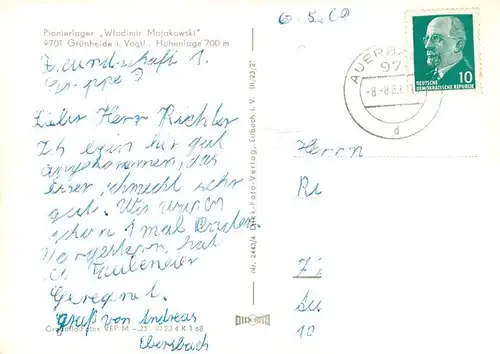 Pionierlager „Wladimir Majakowski"
9701 Grünheide i. Vogtl., Höhenlage 700 m
Freundschaft 1.
Gruppe 3
Lieber Herr Richter
Ich bin hir gut
angekommen, das
essen schmeckt sehr
gut. Wir waren
schon 1 mal Baden.
Vorgestern hat
es
Geregnet.
gruß von Andreas
Ebersbach
VEB M
III 23 4 K 1 68
Nr. 2443/4 Dick-Foto-Verlag, Erlbach i. V. III/23/21
DICK FOTO
6. 5. 69
AUERBA
97
-8.-8.69
d
DEUTSCHE
DEMOKRATISCHE REPUBLIK
10
Herrn
Ri
10